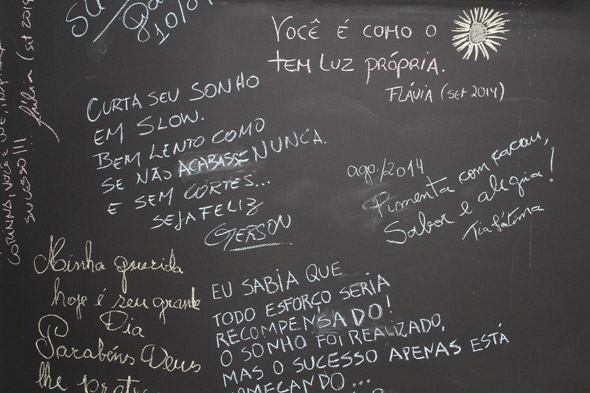 SU
10/0
VOCÊ É COMO O
TEM LUZ PRÓPRIA.
FLÁVIA (SET 2014)
CORINNA, VOCÊ É
SUCESSO!!!
Júlia (set 2014)
CURTA SEU SONHO
EM SLOW.
BEM LENTO COMO
SE NÃO ACABASSE NUNCA.
E SEM CORTES...
SEJA FELIZ
GERSON
ago/2014
Pimenta com cacau,
Sabor e alegria!
Tia Fátima
Minha querida
hoje é seu grande
Dia
Parabéns Deus
lhe
EU SABIA QUE
TODO ESFORÇO SERIA
RECOMPENSADO!
O SONHO FOI REALIZADO,
MAS O SUCESSO APENAS ESTÁ
COMEÇANDO...